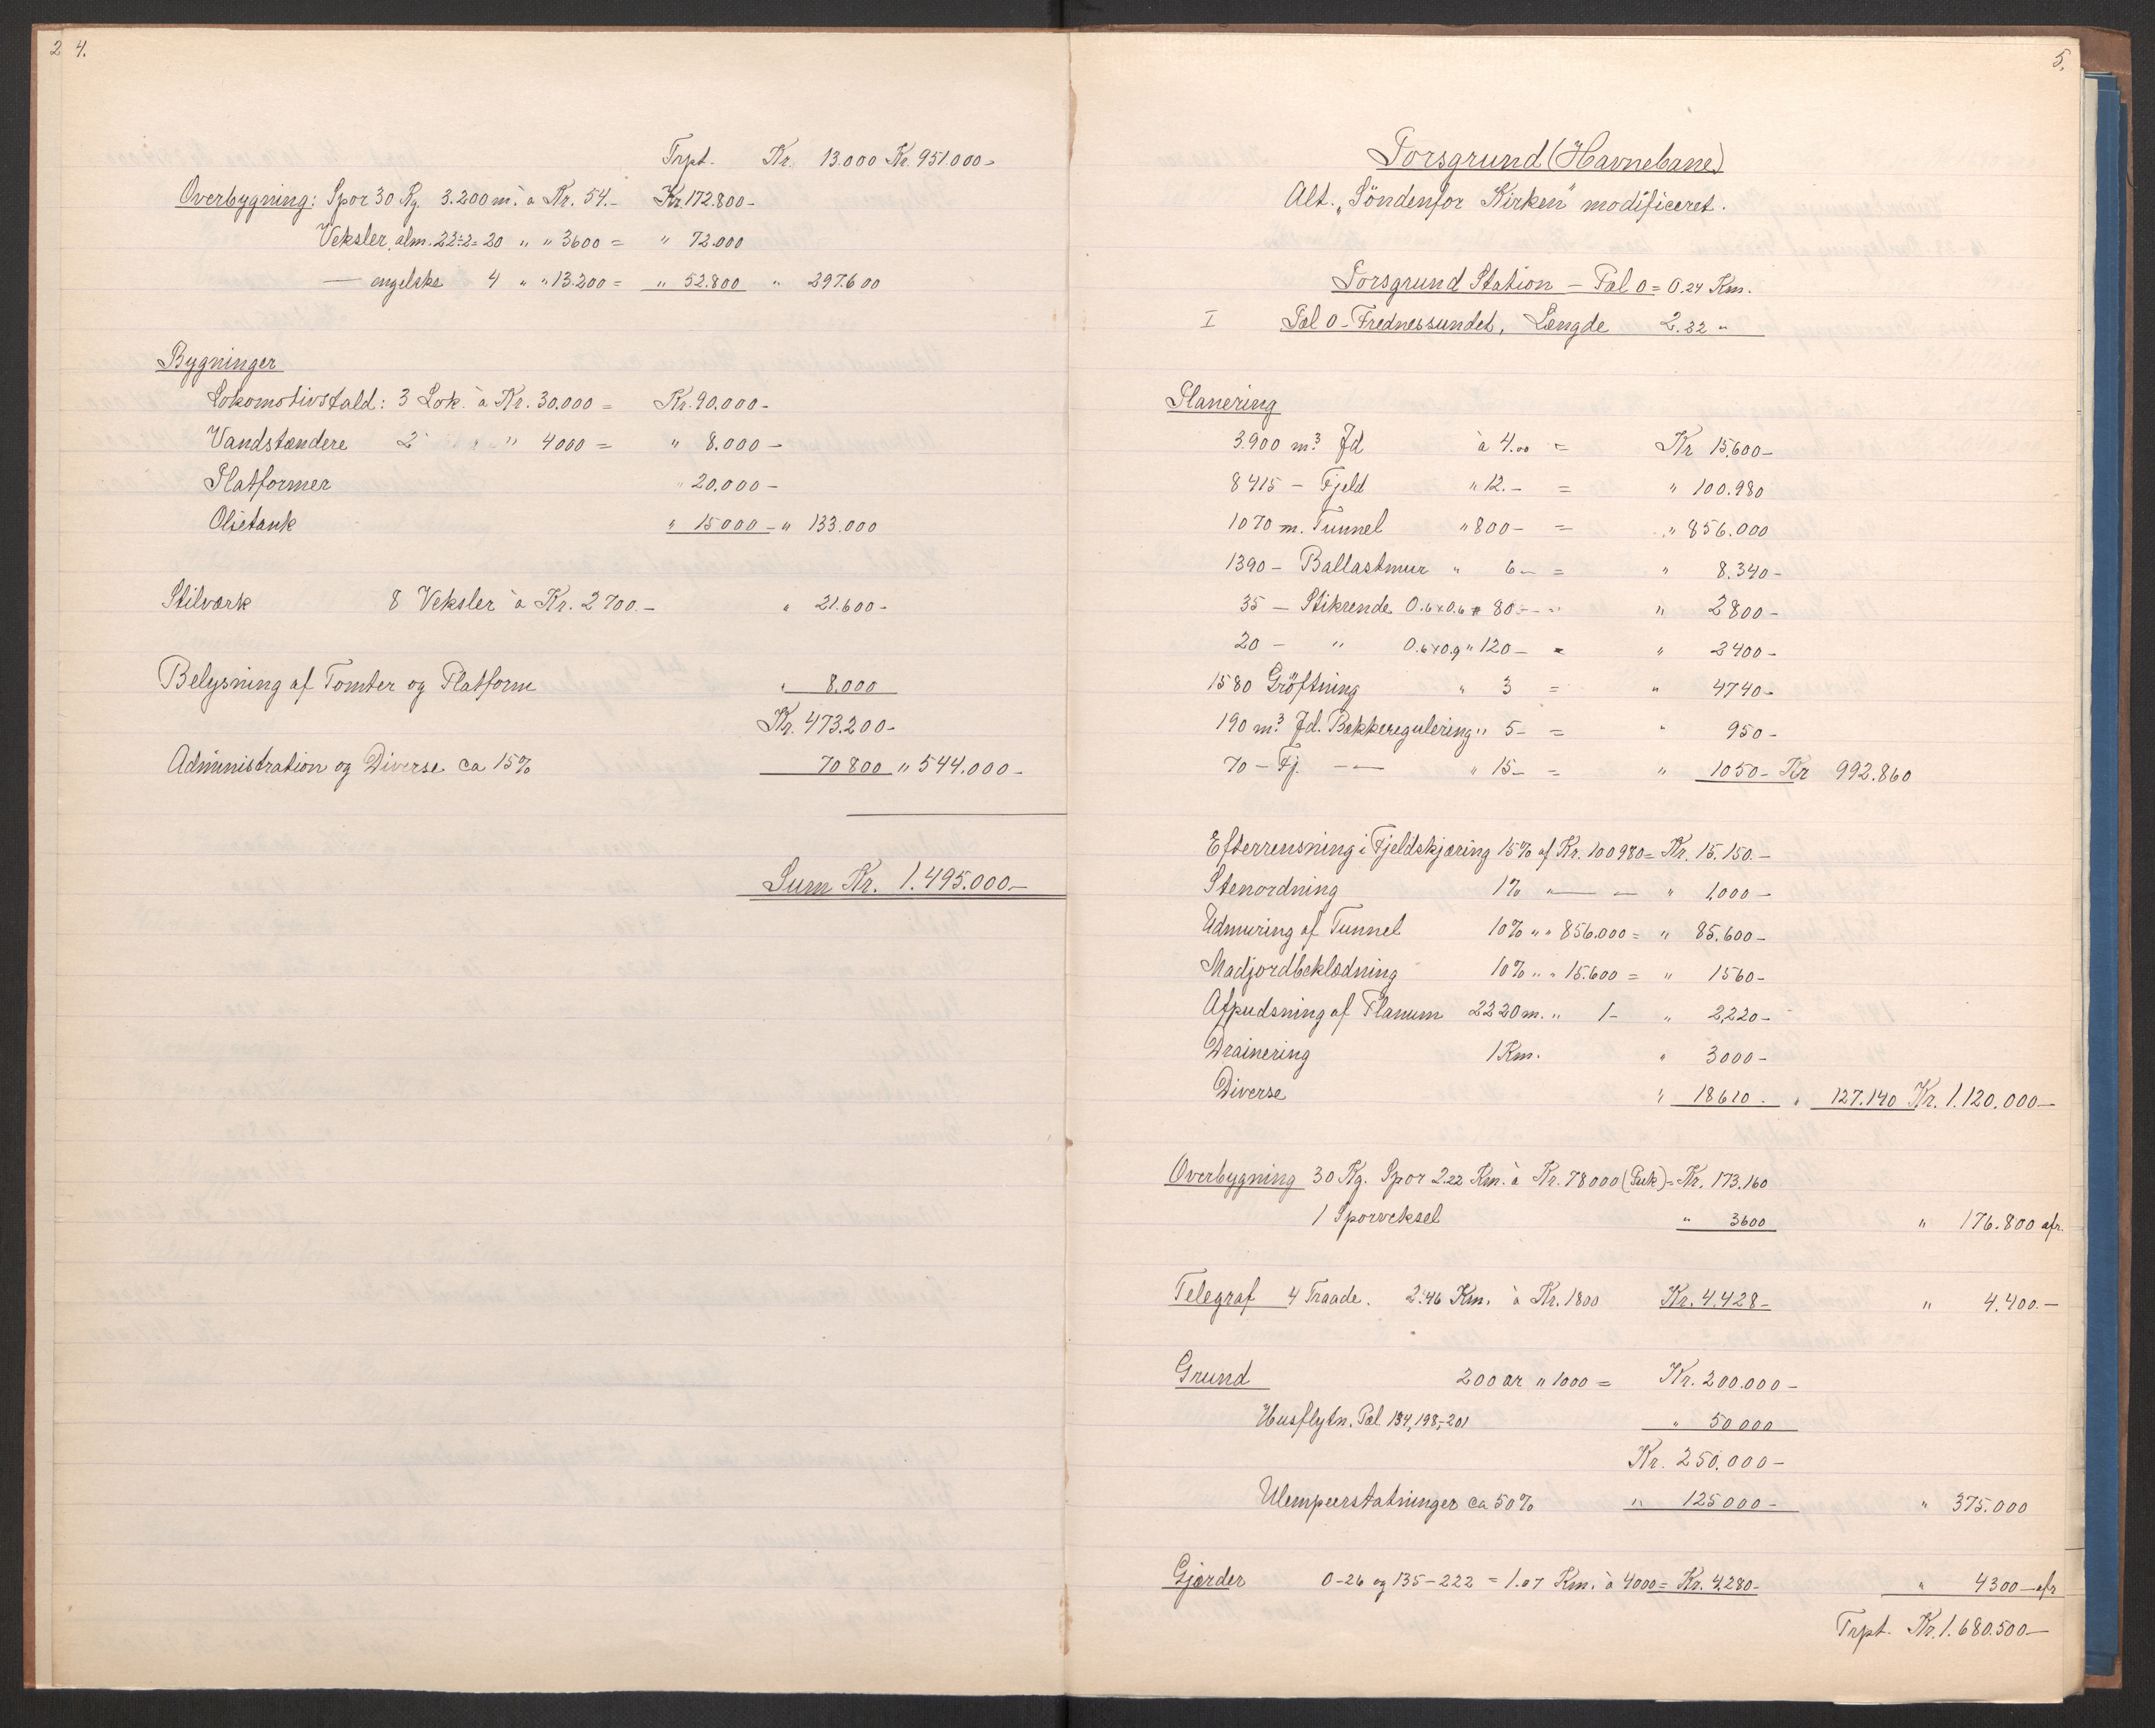 2 4.
Trpt. Kr. 13.000 Kr. 951.000-
Overbygning: Spor 30 Kg. 3.200 m. à Kr. 54.- Kr. 172.800-
Veksler, alm. 22÷2=20 " " 3600 = " 72.000
— engelske 4 " " 13.200 = " 52.800 " 297.600
Bygninger
Lokomotivstald: 3 Lok. à Kr. 30.000 = Kr. 90.000-
Vandstændere 2 " " 4000 = " 8.000-
Platformer " 20.000-
Oljetank " 15000- " 133.000
Stilværk 8 Veksler à Kr. 2700.- " 21.600-
Belysning af Tomter og Platform " 8.000
Kr. 473.200-
Administration og Diverse ca 15% 70800 " 544.000-
Sum Kr. 1.495.000-
5.
Porsgrund (Havnebane)
Alt. „Söndenfor Kirken" modificeret.
Porsgrund Station - Pæl 0 = 0.24 Km.
I Pæl 0 - Frednessundet, Længde 2.22 "
Planering
3.900 m³ Jd à 4.00 = Kr 15.600-
8415 - Fjeld " 12.- = " 100.980
1070 m. Tunnel " 800- = " 856.000
1390 - Ballastmur " 6- = " 8.340-
35 - Stikrende 0.6x0.6 " 80.- = " 2800-
20 - " 0.6x0.9 " 120- = " 2400-
1580 Gröftning " 3 = " 4740-
190 m³ Jd. Bækkeregulering " 5- = " 950-
70 - Fj. — " 15- = " 1050- Kr 992.860
Efterrensning i Fjeldskjæring 15% af Kr. 100980 = Kr. 15.150.-
Stenordning 1% " — — " 1,000-
Udmuring af Tunnel 10% " " 856.000 = " 85.600-
Madjordbeklædning 10% " " 15.600 = " 1560-
Afpudsning af Planum 2220 m. " 1- " 2,220-
Drainering 1 Km. " 3000-
Diverse " 18610. " 127.140 Kr. 1.120.000-
Overbygning 30 Kg. Spor 2.22 Km. à Kr. 78000 (Puk) = Kr. 173.160
1 Sporveksel " 3600 " 176.800 afr.
Telegraf 4 Traade. 2.46 Km. à Kr. 1800 Kr. 4.428- " 4.400.-
Grund 200 ar " 1000 = Kr. 200.000-
Husflytn. Pæl 184, 198,-201 " 50000
Kr. 250.000-
Ulempeerstatninger ca 50% " 125000- " 375.000
Gjærder 0-26 og 135-222 = 1.07 Km. à 4000 = Kr. 4.280- " 4300- afr
Trpt. Kr. 1.680.500-